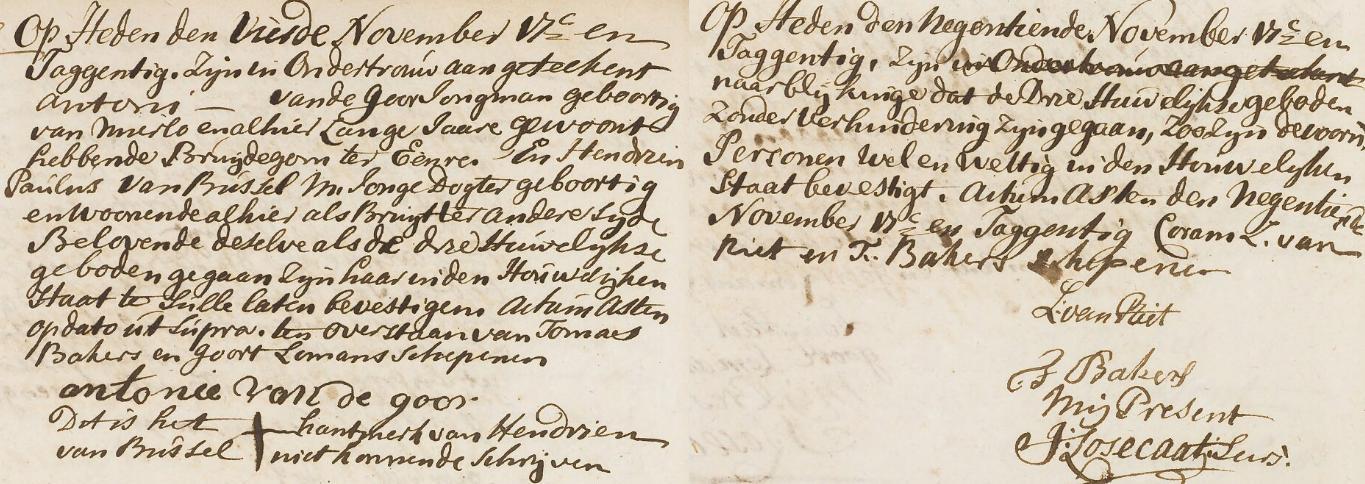 Op Heden den Vierde November 17c en
Taggentig. Zijn in Ondertrouw aangeteekent
Antoni — vande Goor Jongman geboortig
van Mierlo en alhier Lange Jaare gewoont
hebbende Bruydegom ter Eenre. En Hendrien
Paulus van Bussel M. Jonge Dogter geboortig
en woonende alhier als Bruyt ter andere Zyde
Belovende deselve als de drie Huwelijkse
geboden gegaan Zijn haar in den Houwelijken
Staat te Sulle laten bevestigen Actum Asten
op dato ut supra. ten overstaan van Tomas
Bakers en Goort Lomans Schepenen
antonie van de goor
Dit is het hantmerk van Hendrien
van Bussel niet konnende Schrijven
Op Heden den Negentiende November 17c en
Taggentig, Zijn in Ondertrouw aangetekent
naar blijkinge dat de Drie Huwelijkse geboden
Zonder verhindering Zijn gegaan, Zoo Zijn de voorn.
Personen wel en wettig in den Houwelijken
Staat bevestigt. Actum Asten den Negentiende
November 17c en Taggentig Coram L. van
Riet en T. Bakers Schepenen
L. van Riet
T Bakers
Mij Present
J. Losecaat Secrs.